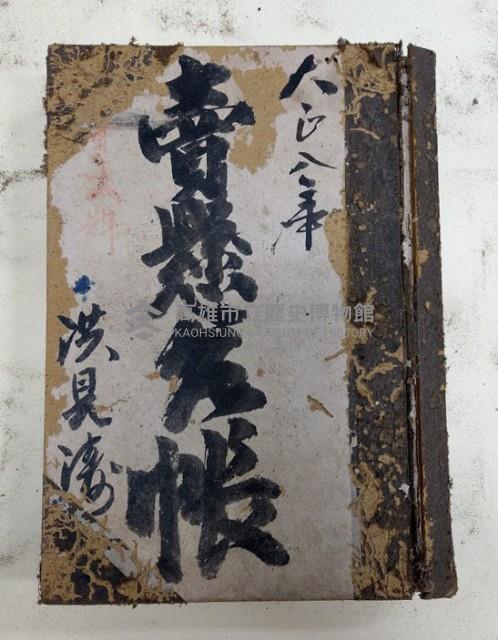 大正八年
賣懸元帳
洪見濤
高雄市立歷史博物館
KAOHSIUNG MUSEUM OF HISTORY